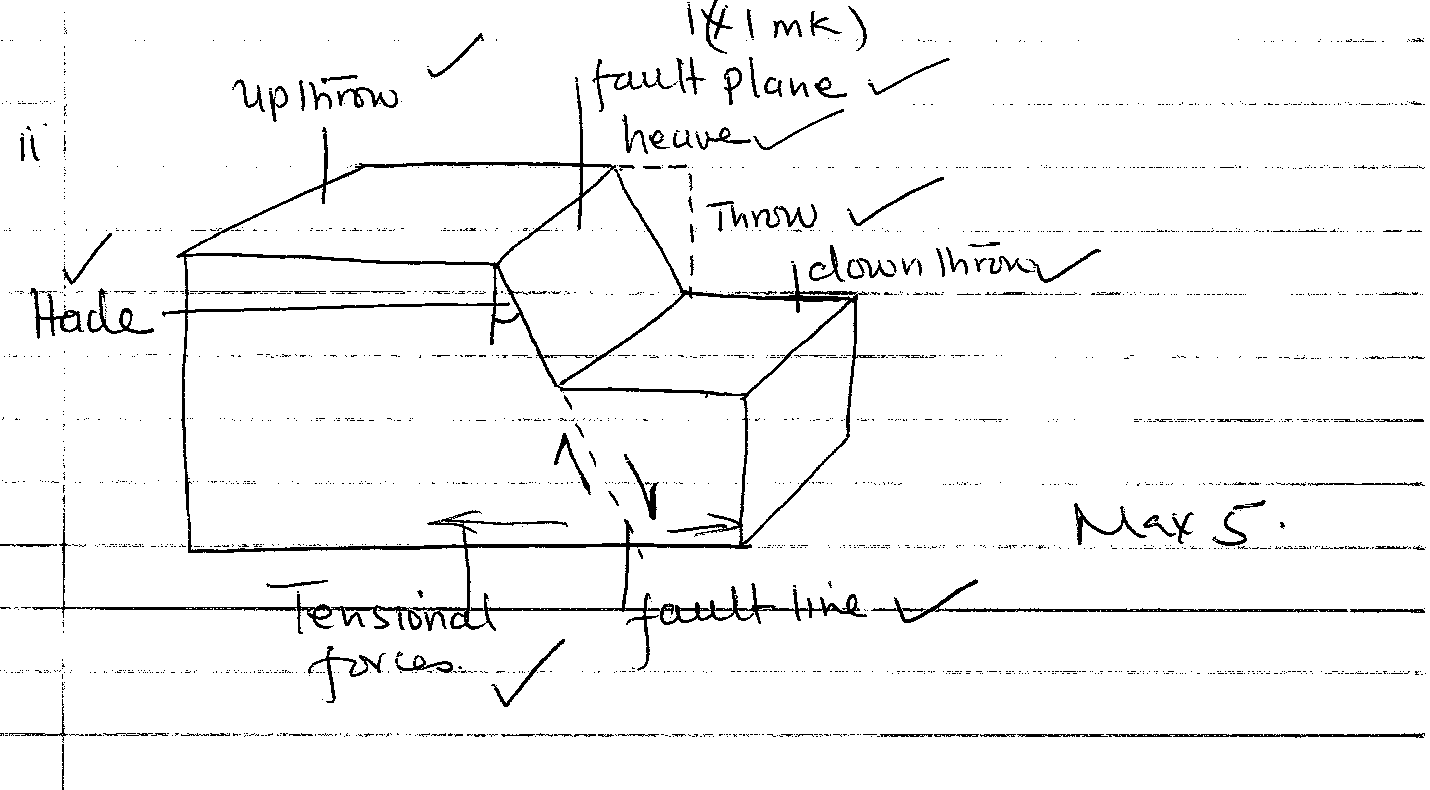 1(x 1 mk)
upthrow
fault plane
ii
heave
Throw
downthrow
Hade
Max 5.
Tensional
forces.
fault line